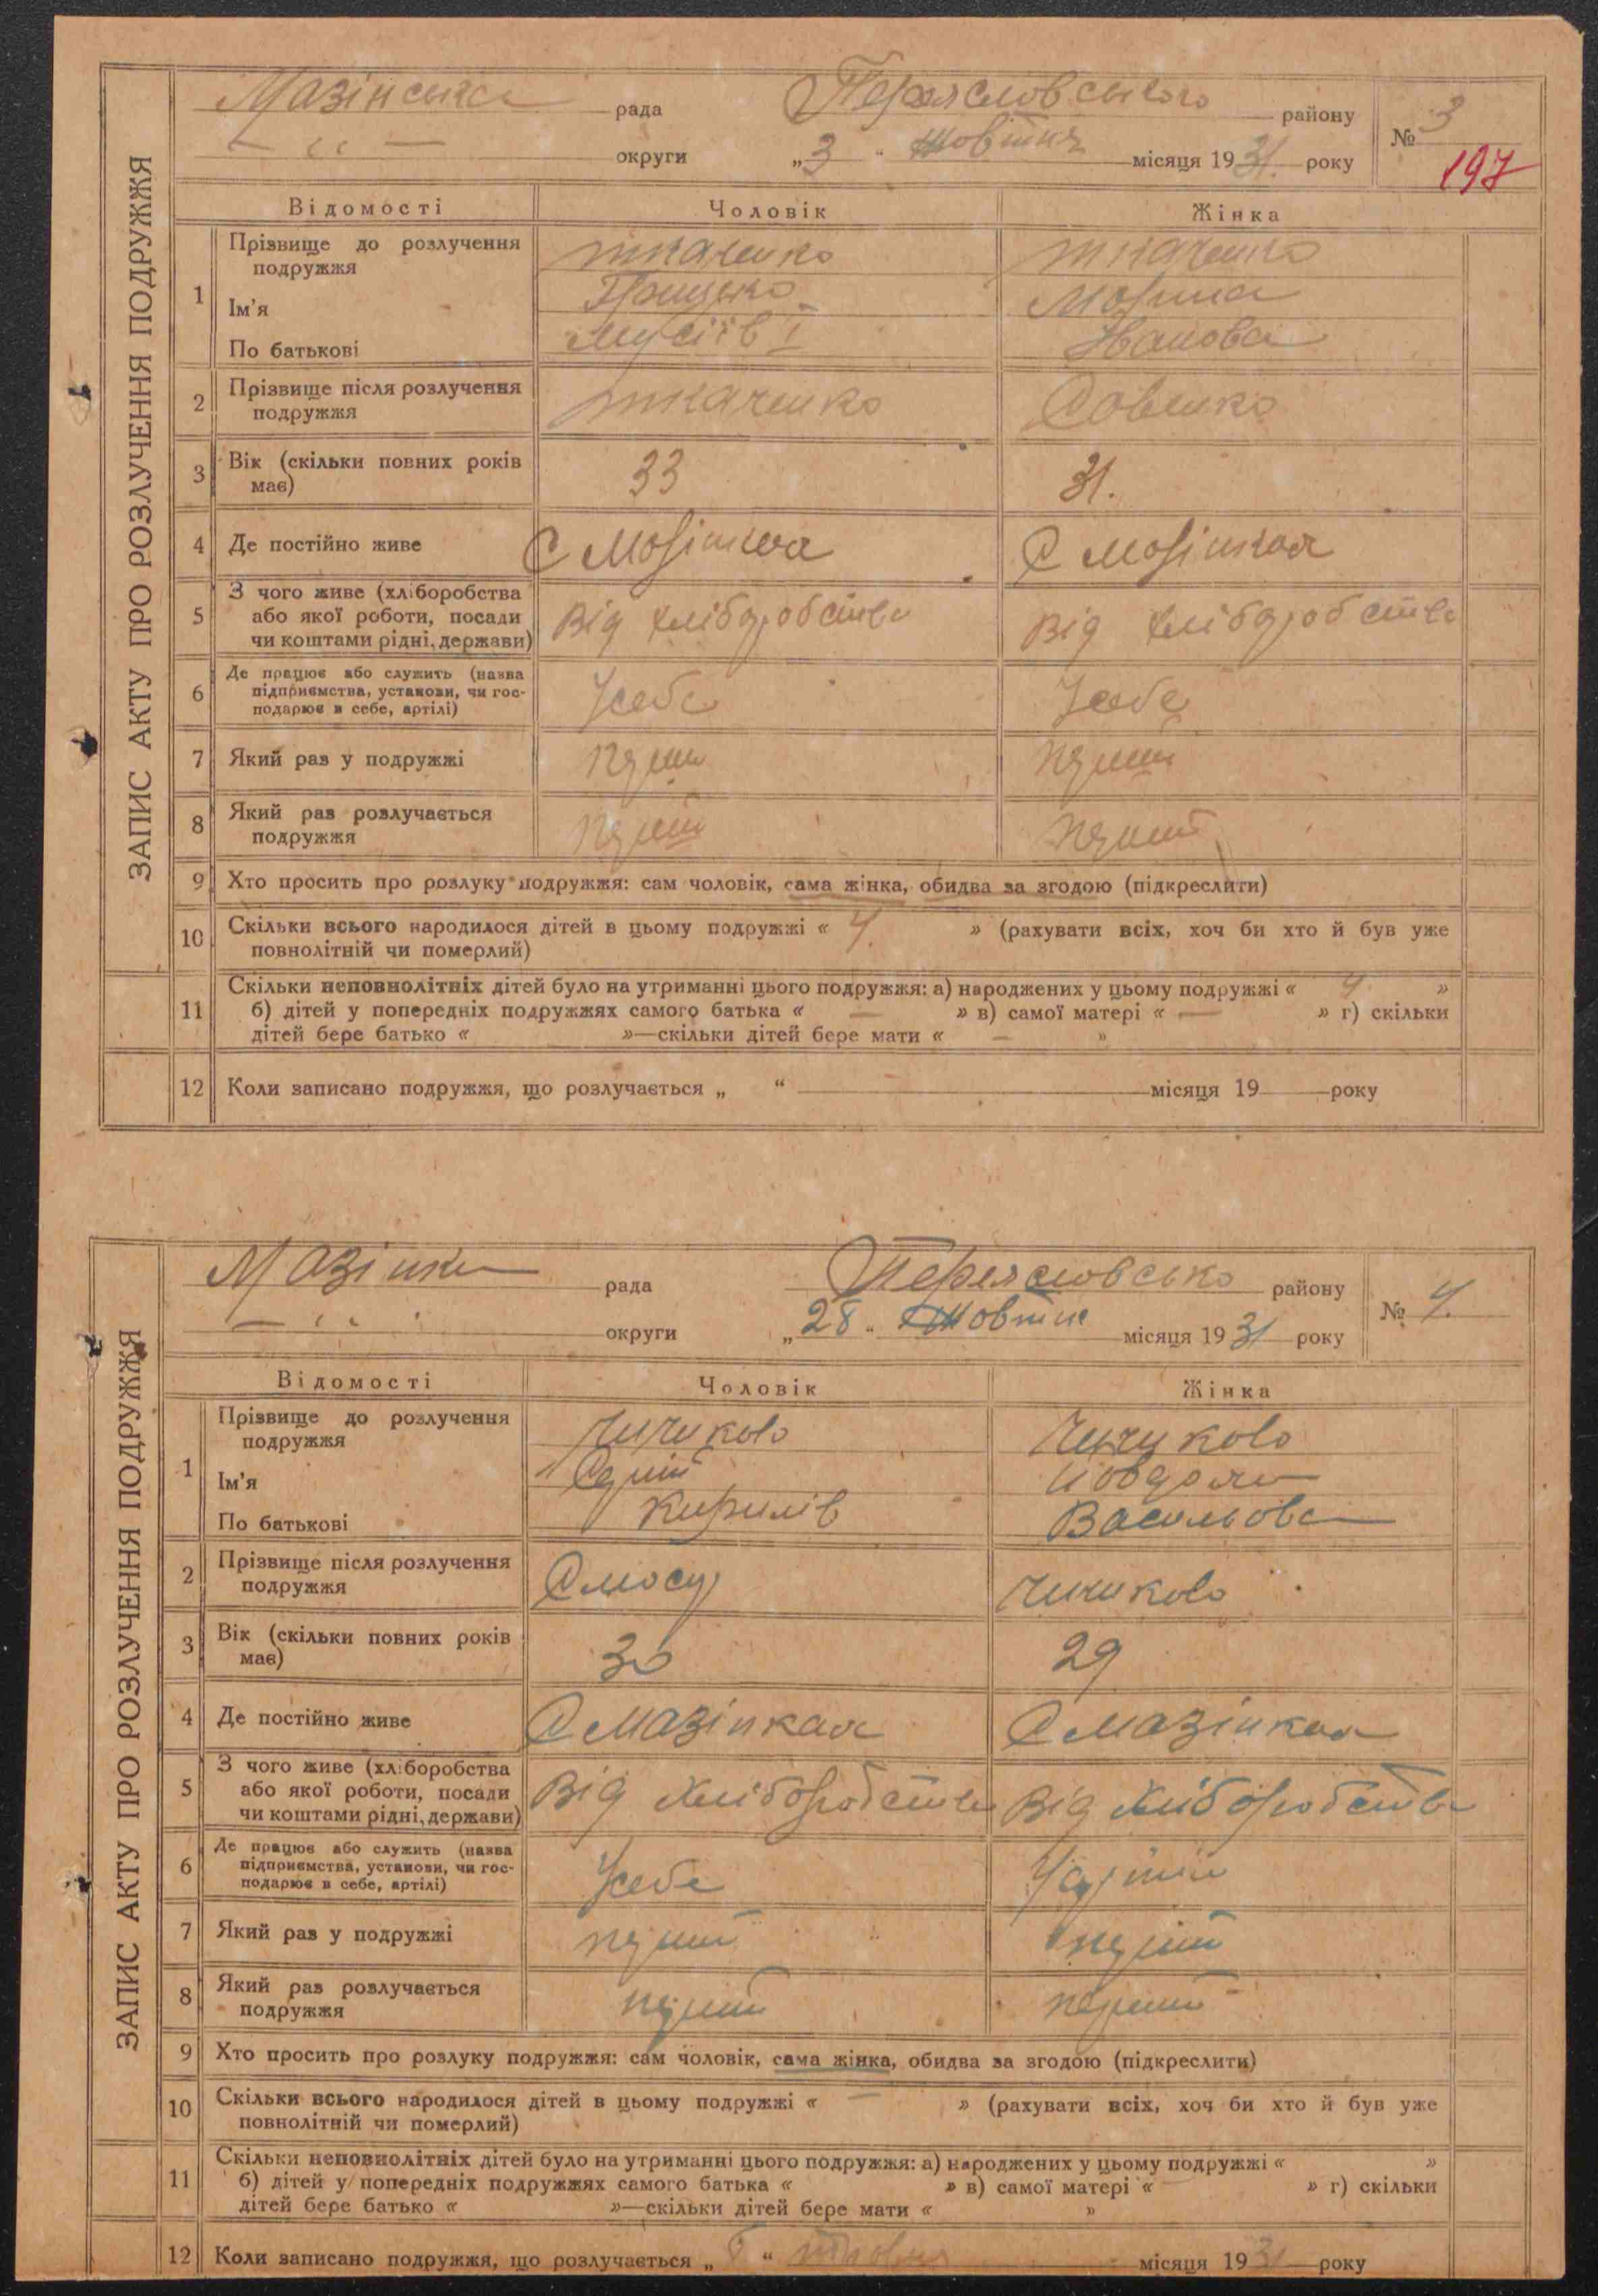 ЗАПИС АКТУ ПРО РОЗЛУЧЕННЯ ПОДРУЖЖЯ
Мазінська рада Переясловського району № 3
— " — округи „3“ Жовтня місяця 1931. року 197
Відомості Чоловік Жінка
1 Прізвище до розлучення подружжя Ткаченко Ткаченко
Ім'я Грицько
По батькові Мусіїв Іванова
2 Прізвище після розлучення подружжя Ткаченко Совенко
3 Вік (скільки повних років має) 33 31.
4 Де постійно живе С Мозінках С Мозінках
5 З чого живе (хліборобства або якої роботи, посади чи коштами рідні, держави) Від хліборобства Від хліборобства
6 Де працює або служить (назва підприємства, установи, чи господарює в себе, артілі) Усебе Усебе
7 Який раз у подружжі перший перший
8 Який раз розлучається подружжя перший перший
9 Хто просить про розлуку подружжя: сам чоловік, сама жінка, обидва за згодою (підкреслити)
10 Скільки всього народилося дітей в цьому подружжі « 4. » (рахувати всіх, хоч би хто й був уже
повнолітній чи померлий)
11 Скільки неповнолітніх дітей було на утриманні цього подружжя: а) народжених у цьому подружжі « 4 »
б) дітей у попередніх подружжях самого батька « — » в) самої матері « — » г) скільки
дітей бере батько « »—скільки дітей бере мати « — »
12 Коли записано подружжя, що розлучається „ “ місяця 19 року
ЗАПИС АКТУ ПРО РОЗЛУЧЕННЯ ПОДРУЖЖЯ
Мазінки рада Переясловсько району № 4.
— " округи „28“ Жовтня місяця 1931 року
Відомості Чоловік Жінка
1 Прізвище до розлучення подружжя Чичиково Чичиково
Ім'я
По батькові Кирилів Васильова
2 Прізвище після розлучення подружжя Чичиково
3 Вік (скільки повних років має) 30 29
4 Де постійно живе С Мазінках С Мазінках
5 З чого живе (хліборобства або якої роботи, посади чи коштами рідні, держави) Від хліборобства Від хліборобства
6 Де працює або служить (назва підприємства, установи, чи господарює в себе, артілі) Усебе
7 Який раз у подружжі перший перший
8 Який раз розлучається подружжя перший перший
9 Хто просить про розлуку подружжя: сам чоловік, сама жінка, обидва за згодою (підкреслити)
10 Скільки всього народилося дітей в цьому подружжі « — » (рахувати всіх, хоч би хто й був уже
повнолітній чи померлий)
11 Скільки неповнолітніх дітей було на утриманні цього подружжя: а) народжених у цьому подружжі « »
б) дітей у попередніх подружжях самого батька « » в) самої матері « — » г) скільки
дітей бере батько « »—скільки дітей бере мати « »
12 Коли записано подружжя, що розлучається „ “ місяця 1931 року